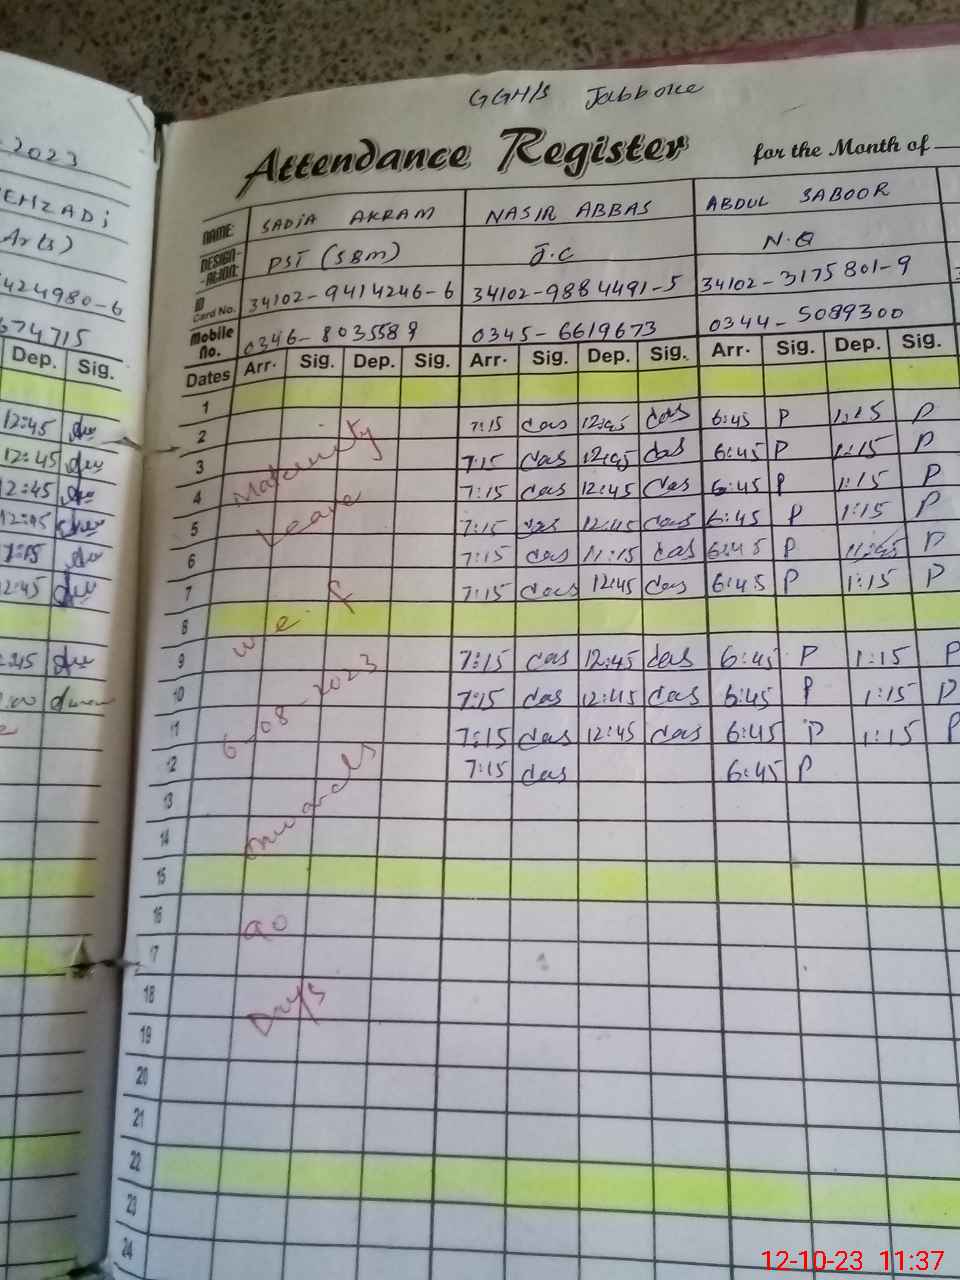 GGH/S Jabboke
Attendance Register for the Month of
NAME: SADIA AKRAM NASIR ABBAS ABDUL SABOOR
DESIGN-ATION: PST (SBM) J.C N.Q
ID Card No. 34102-9414246-6 34102-9884491-5 34102-3175801-9
Mobile No. 0346-8035589 0345-6619673 0344-5089300
Dates Arr. Sig. Dep. Sig. Arr. Sig. Dep. Sig. Arr. Sig. Dep. Sig.
1
2 7:15 12:45 6:45 P 1:15 P
3 7:15 12:45 6:45 P 1:15 P
4 7:15 12:45 6:45 P 1:15 P
5 7:15 12:45 6:45 P 1:15 P
6 7:15 11:15 6:45 P 11:45 P
7 7:15 12:45 6:45 P 1:15 P
8
9 7:15 12:45 6:45 P 1:15 P
10 7:15 12:45 6:45 P 1:15 P
11 7:15 12:45 6:45 P 1:15 P
12 7:15 6:45 P
13
14
15
16
17
18
19
20
21
22
23
24
Maternity
Leave
w.e.f
6-08-2023
onwards
90
Days
2023
EHZADI
Arts)
424980-6
674715
Dep. Sig.
12:45
12:45
12:45
12:45
1:15
12:45
:45
:00
12-10-23 11:37